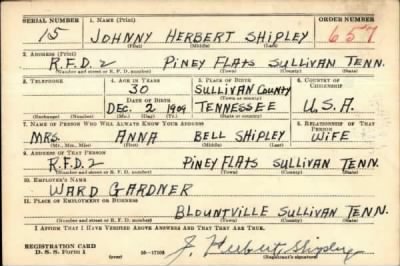 SERIAL NUMBER 1. NAME (Print) ORDER NUMBER
15 JOHNNY HERBERT SHIPLEY 657
(First) (Middle) (Last)
2. ADDRESS (Print)
R.F.D. 2 PINEY FLATS SULLIVAN TENN.
(Number and street or R. F. D. number) (Town) (County) (State)
3. TELEPHONE 4. AGE IN YEARS 5. PLACE OF BIRTH 6. COUNTRY OF CITIZENSHIP
30 SULLIVAN COUNTY
DATE OF BIRTH (Town or county)
DEC. 2 1909 TENNESSEE U.S.A.
(Exchange) (Number) (Mo.) (Day) (Yr.) (State or country)
7. NAME OF PERSON WHO WILL ALWAYS KNOW YOUR ADDRESS 8. RELATIONSHIP OF THAT PERSON
MRS. ANNA BELL SHIPLEY WIFE
(Mr., Mrs., Miss) (First) (Middle) (Last)
9. ADDRESS OF THAT PERSON
R.F.D. 2 PINEY FLATS SULLIVAN TENN.
(Number and street or R. F. D. number) (Town) (County) (State)
10. EMPLOYER'S NAME
WARD GARDNER
11. PLACE OF EMPLOYMENT OR BUSINESS
BLOUNTVILLE SULLIVAN TENN.
(Number and street or R. F. D. number) (Town) (County) (State)
I AFFIRM THAT I HAVE VERIFIED ABOVE ANSWERS AND THAT THEY ARE TRUE.
REGISTRATION CARD J. Herbert Shipley
D. S. S. Form 1 (over) (Registrant's signature)